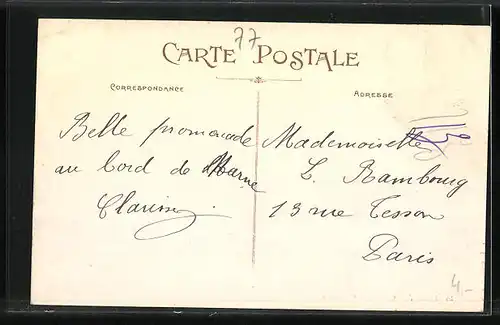 77
CARTE POSTALE
CORRESPONDANCE
ADRESSE
Belle promenade
au bord de Marne
Clarisse
Mademoiselle
L. Rambourg
13 rue Tesson
Paris
4.-